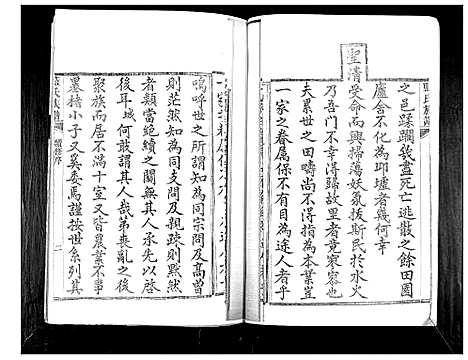 之邑蹂躪幾盡死亡逃散之餘田園
廬舍不化為邱墟者幾何幸
聖清受命而興掃蕩妖氛拔斯民於水火
乃吾門幸得歸故里者寥寥也
夫累世之田疇尚不得指為本業豈
一家之眷属保不有目為途人者乎
嗚呼世之所謂知為同宗問及高曾
則茫然知為同支問及親疎則默然
者類當絶續之關無其人承先以啓
後耳城何敢謂其人哉第丧亂之後
聚族而居不滿十室又皆農業不事
墨楮小子又奚委焉謹按世系列其
氏族譜
續修序
二